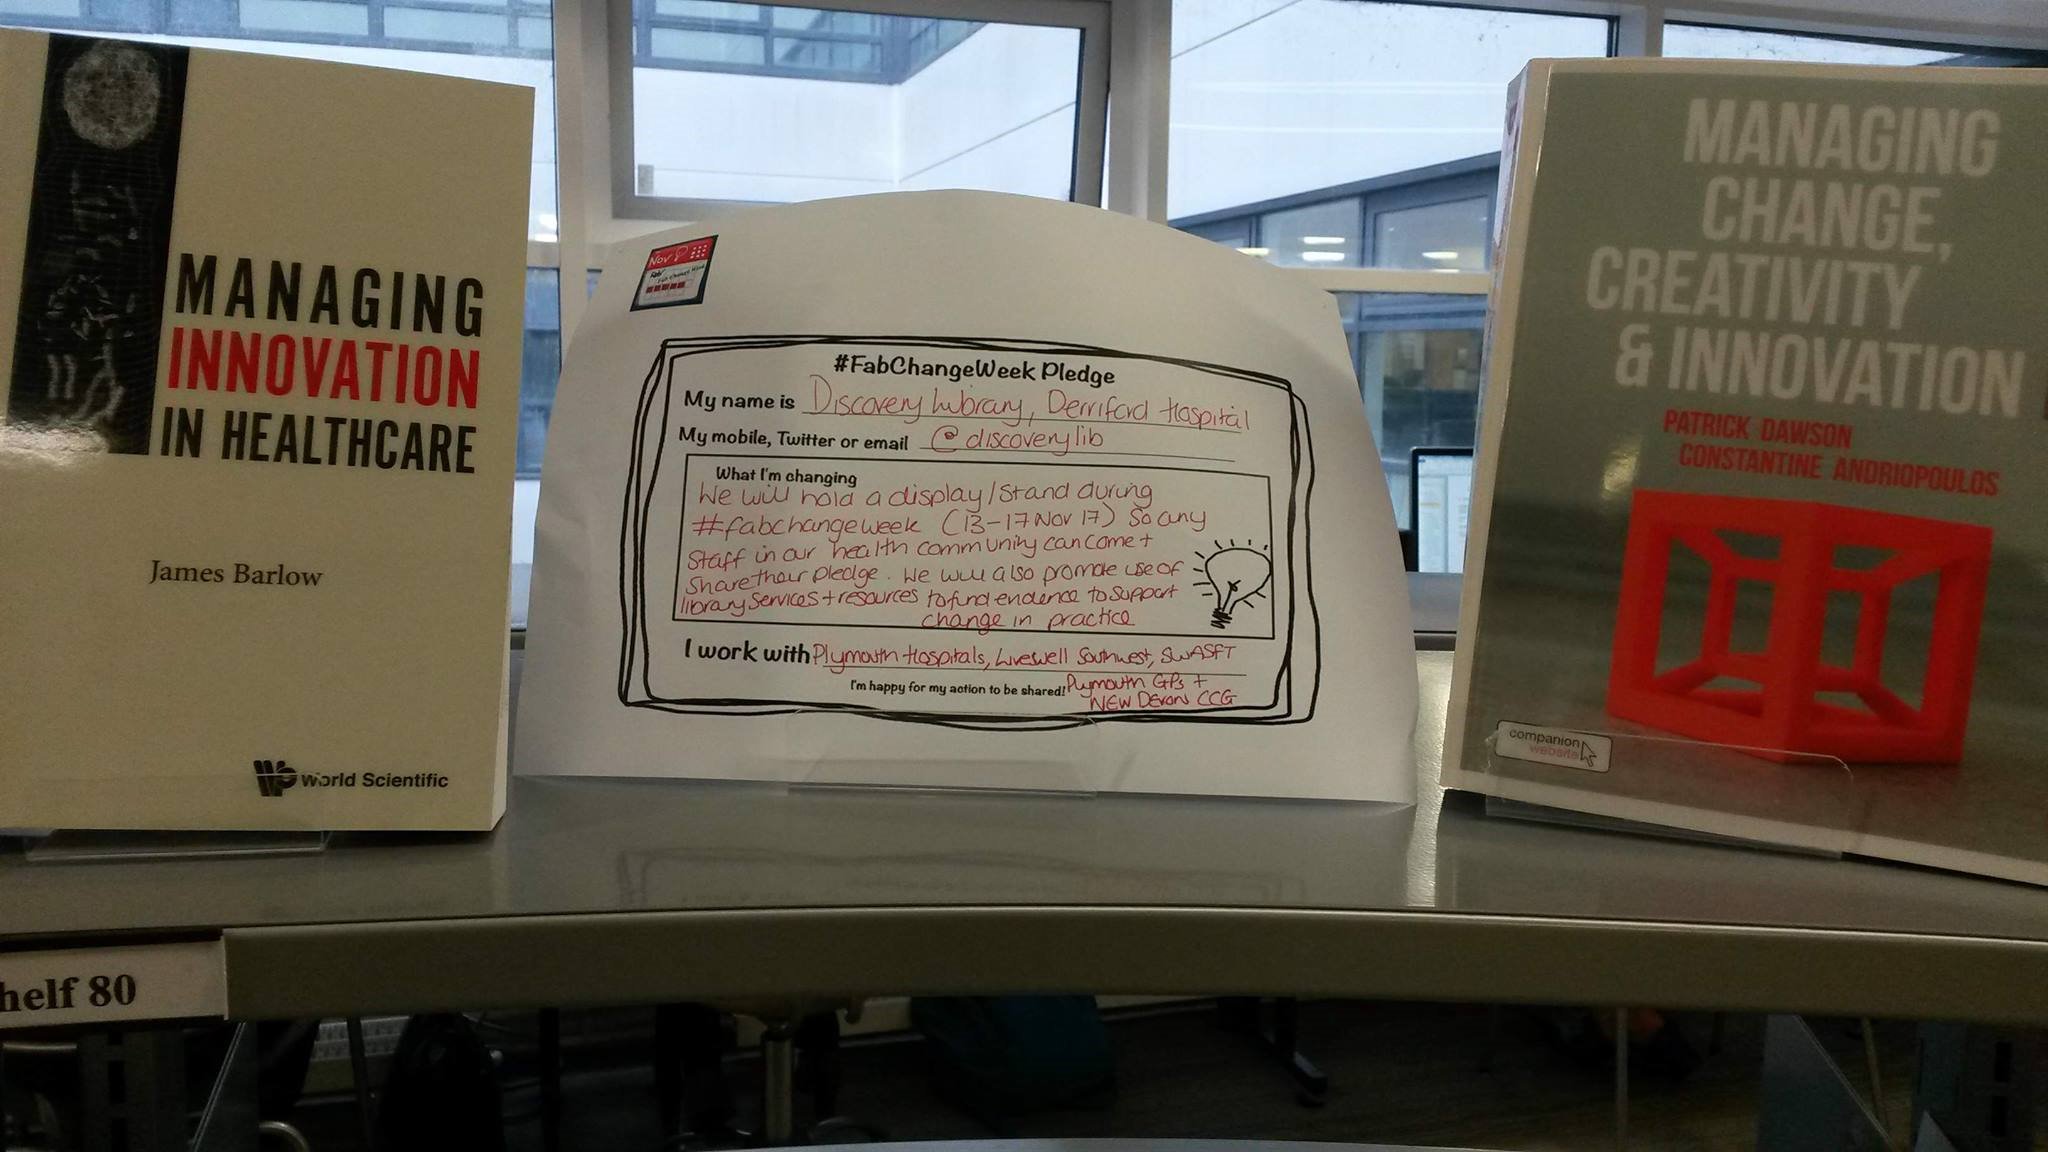 MANAGING
INNOVATION
IN HEALTHCARE
James Barlow
World Scientific
Nov
Fab Change Week
#FabChangeWeek Pledge
My name is Discovery Library, Derriford Hospital
My mobile, Twitter or email @discoverylib
What I'm changing
We will hold a display/stand during
#fabchangeweek (13-17 Nov 17) so any
staff in our health community can come +
share their pledge. We will also promote use of
library services + resources to find evidence to support
change in practice
I work with Plymouth Hospitals, Livewell Southwest, SWASFT
I'm happy for my action to be shared! Plymouth GPs +
NEW Devon CCG
MANAGING
CHANGE,
CREATIVITY
& INNOVATION
PATRICK DAWSON
CONSTANTINE ANDRIOPOULOS
companion
website
helf 80